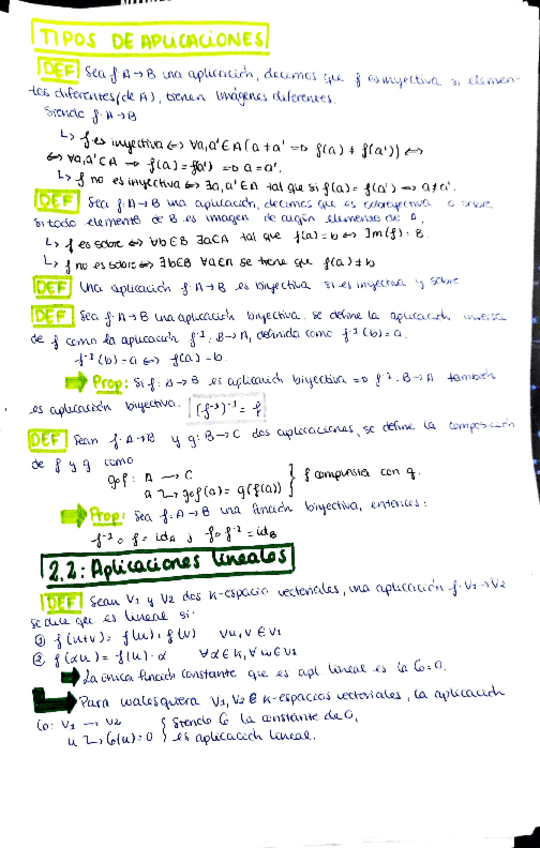 TIPOS DE APLICACIONES
DEF Sea f: A → B una aplicación, decimos que f es inyectiva si elemen-
tos diferentes (de A), tienen imágenes diferentes.
Siendo f: A → B
↳ f es inyectiva ⇔ ∀a,a' ∈ A (a ≠ a' ⇒ f(a) ≠ f(a')) ⇔
⇔ ∀a,a' ∈ A → f(a) = f(a') ⇒ a = a'.
↳ f no es inyectiva ⇔ ∃a,a' ∈ A tal que si f(a) = f(a') → a ≠ a'.
DEF Sea f: A → B una aplicación, decimos que es sobreyectiva o sobre
si todo elemento de B es imagen de algún elemento de A.
↳ f es sobre ⇔ ∀b∈B ∃a∈A tal que f(a) = b ⇔ Im(f) = B.
↳ f no es sobre ⇔ ∃b∈B ∀a∈A se tiene que f(a) ≠ b
DEF Una aplicación f: A → B es biyectiva si es inyectiva y sobre
DEF Sea f: A → B una aplicación biyectiva. se define la aplicación inversa
de f como la aplicación f⁻¹: B → A, definida como f⁻¹(b) = a.
f⁻¹(b) = a ⇔ f(a) = b.
Prop: Si f: A → B es aplicación biyectiva ⇒ f⁻¹: B → A también
es aplicación biyectiva. (f⁻¹)⁻¹ = f
DEF Sean f: A → B y g: B → C dos aplicaciones, se define la composición
de f y g como
g∘f: A → C
a ↦ g∘f(a) = g(f(a)) } f compuesta con g.
Prop: Sea f: A → B una función biyectiva, entonces:
f⁻¹ ∘ f = id_A ; f ∘ f⁻¹ = id_B
2.2: Aplicaciones lineales
DEF Sean V₁ y V₂ dos K-espacio vectoriales, una aplicación f: V₁ → V₂
se dice que es lineal si:
① f(u+v) = f(u) + f(v) ∀u,v ∈ V₁
② f(αu) = f(u)·α ∀α∈K, ∀u∈V₁
La única función constante que es apl. lineal es la C₀ = 0.
Para cualesquiera V₁, V₂ K-espacios vectoriales, la aplicación
C₀: V₁ → V₂ { Siendo C₀ la constante de 0,
u ↦ C₀(u) = 0 { es aplicación lineal.